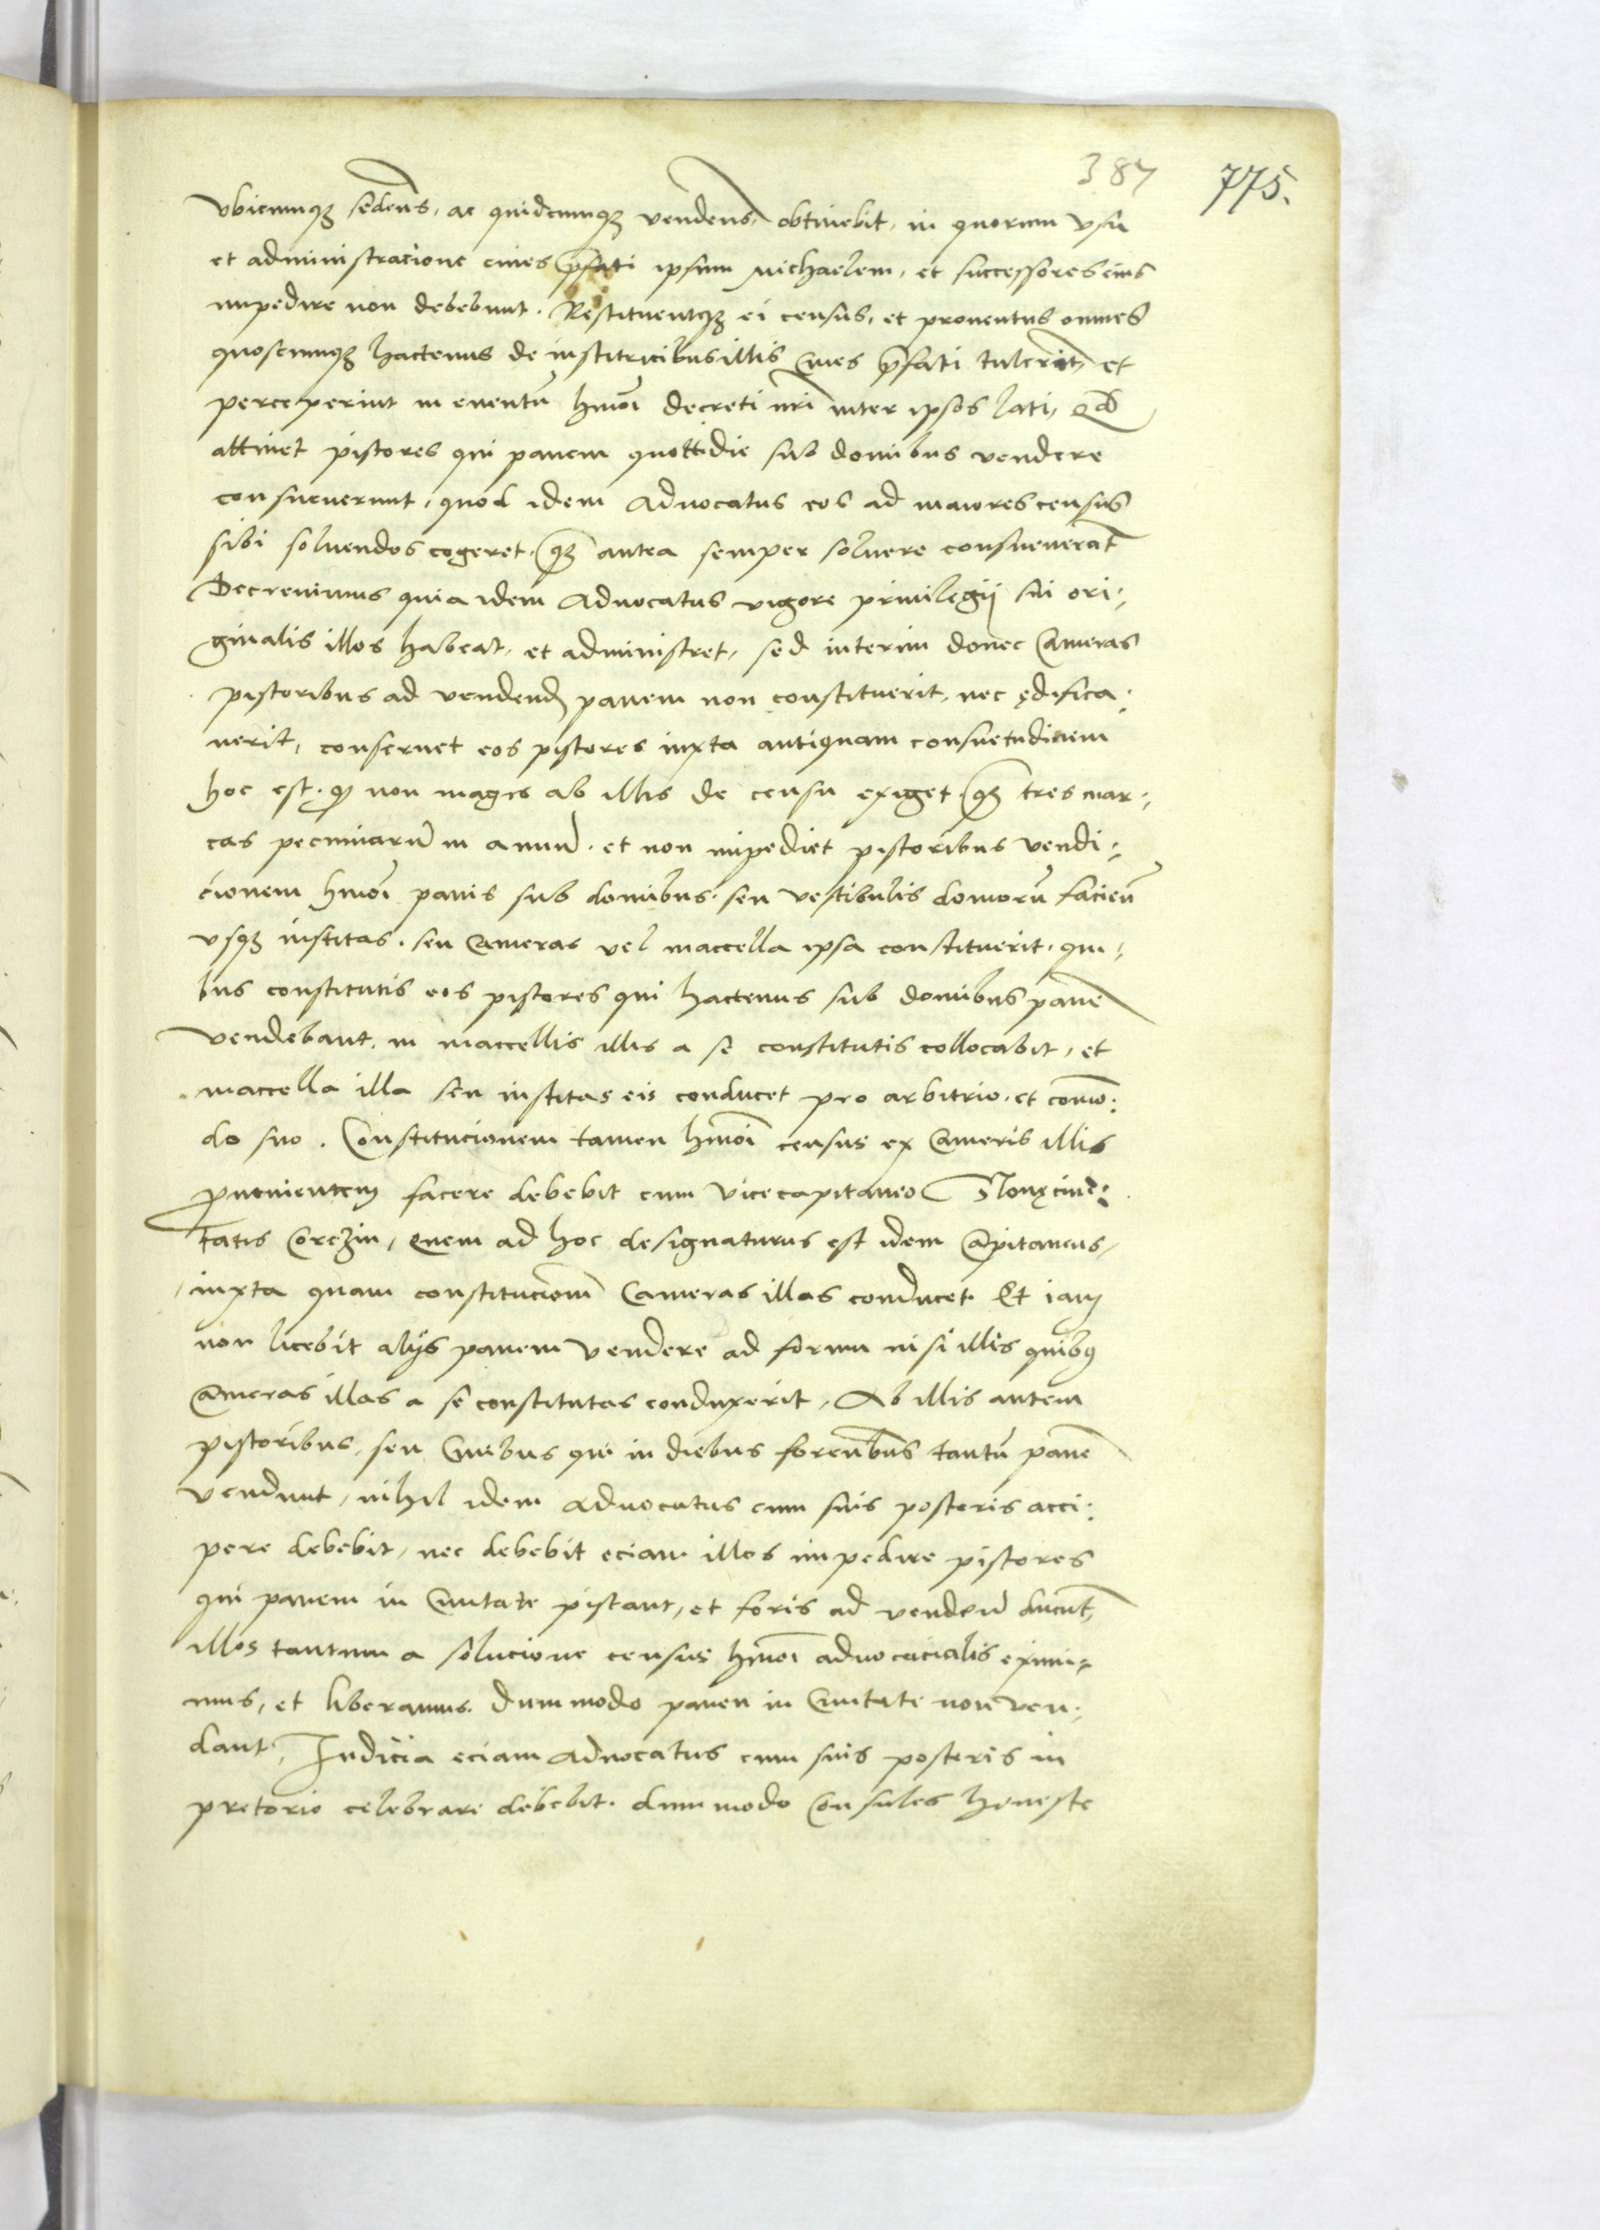 387 775.
Vbicumqȝ sedens, ac quidcumqȝ vendens, obtinebit, in quorum vsu
et administracione ciues p̄fati ipsum Michaelem, et successores eius
impedire non debebunt. Restituentqȝ ei census, et prouentus omnes
quoscumqȝ hactenus de institricibus illis Ciues p̄fati tulerint, et
perceperint in euentū hmōi decreti nr̄i inter ipsos lati, Qd̄
attinet pistores qui panem quottidie sub domibus vendere
consueuerunt, quod idem Aduocatus eos ad maiores census
sibi soluendos cogeret. qȝ antea semper soluere consueuerat̄
Decreuimus quia idem Aduocatus vigore priuilegij sui ori:
ginalis illos habeat, et administret, sed interim donec Cameras
pistoribus ad vendend panem non constituerit, nec ędifica:
uerit, conseruet eos pistores iuxta antiquam consuetudinem
hoc est. qȝ non magis ab illis de censu exiget. qȝ tres mar:
cas pecuniarū in annū. et non impediet pistoribus vendi:
cionem hmōi panis sub domibus. seu vestibulis domorū faciēn
vsqȝ institas. seu Cameras vel maccella ipsa constituerit. qui:
bus constitutis eos pistores qui hactenus sub domibus panē
vendebant, in maccellis illis a se constitutis collocabit, et
maccella illa seu institas eis conducet pro arbitrio. et com̄o:
do suo. Constitucionem tamen hmōi census ex Cameris illis
prouenientem facere debebit cum Vicecapitaneo
tatis Corczin, Quem ad hoc designaturus est idem Capitaneus,
iuxta quam constitucionē Cameras illas conducet. Et iam
non licebit alijs panem vendere ad forum nisi illis quibꝯ
Cameras illas a se constitutas conduxerit, Ab illis autem
pistoribus, seu Ciuibus qui in diebus forenb̄us tantū panē
vendunt, nihil idem aduocatus cum suis posteris acci:
pere debebit, nec debebit eciam illos impedire pistores
qui panem in Ciuitate pistant, et foris ad vendenū ducūt,
illos tantum a solucione census hmōi aduocacialis eximi:
mus, et liberamus. dummodo panem in Ciuitate non ven:
dant, Iudicia eciam Aduocatus cum suis posteris in
pretorio celebrare debebit. dummodo Consules honeste